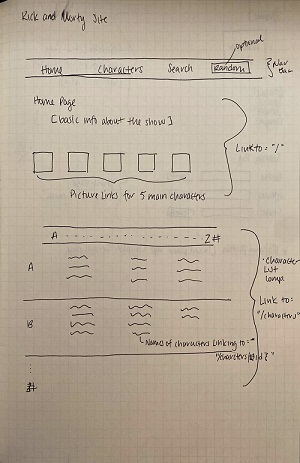 Rick and Morty Site
optional
Home Characters Search Random
Nav Bar
Home Page
[basic info about the show]
Link to = "/"
Picture Links for 5 main characters
A - - - - - - - - - - Z #
A
· Character
List
Link to:
"/characters"
B
Names of characters linking to =
#